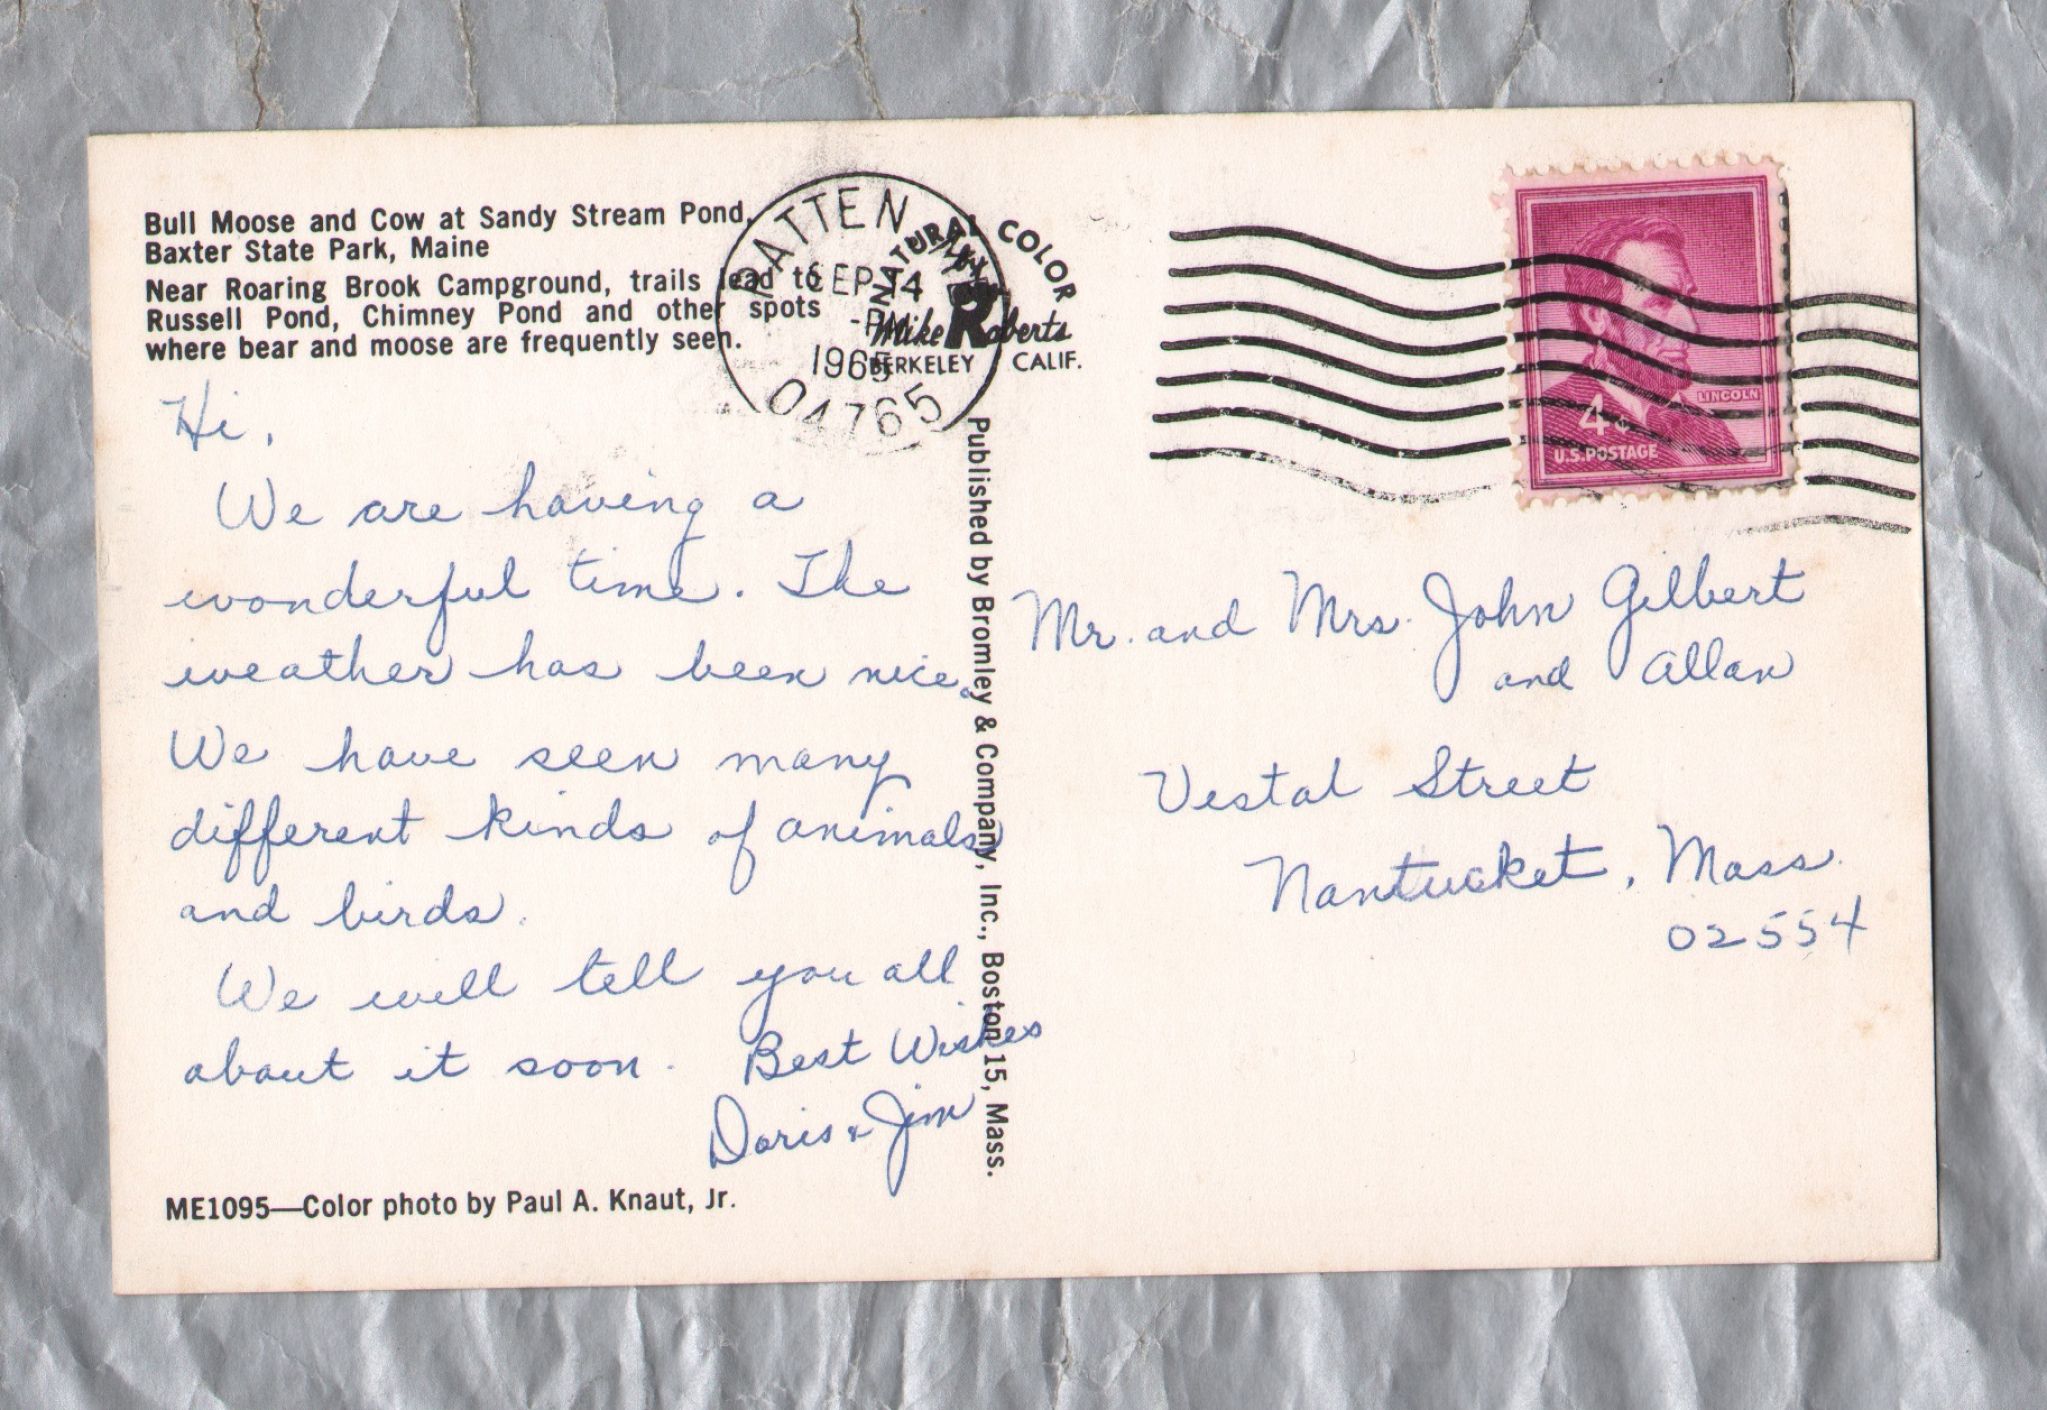 Bull Moose and Cow at Sandy Stream Pond,
Baxter State Park, Maine
Near Roaring Brook Campground, trails lead to
Russell Pond, Chimney Pond and other spots
where bear and moose are frequently seen.
Hi,
We are having a
wonderful time. The
weather has been nice.
We have seen many
different kinds of animals
and birds.
We will tell you all
about it soon.
Best Wishes
Doris & Jim
ME1095—Color photo by Paul A. Knaut, Jr.
PATTEN
SEP 14
PM
1965
04765
NATURAL COLOR
Mike Roberts
BERKELEY CALIF.
Published by Bromley & Company, Inc., Boston 15, Mass.
LINCOLN
4¢
U.S. POSTAGE
Mr. and Mrs. John Gilbert
and Allan
Vestal Street
Nantucket, Mass.
02554